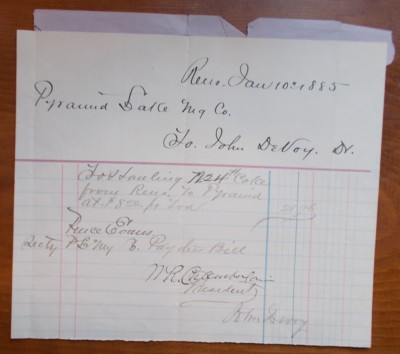 Reno, Jan 10th 1885
Pyramid Lake Mg Co.
To. John DeVoy. Dr.
To Hauling 7224 lb Coke
from Reno to Pyramid
at $8.00 pr Ton
Pierce Evans
Secty P L Mg Co Pay this Bill
W.R. Chamberlain
President
John Devoy